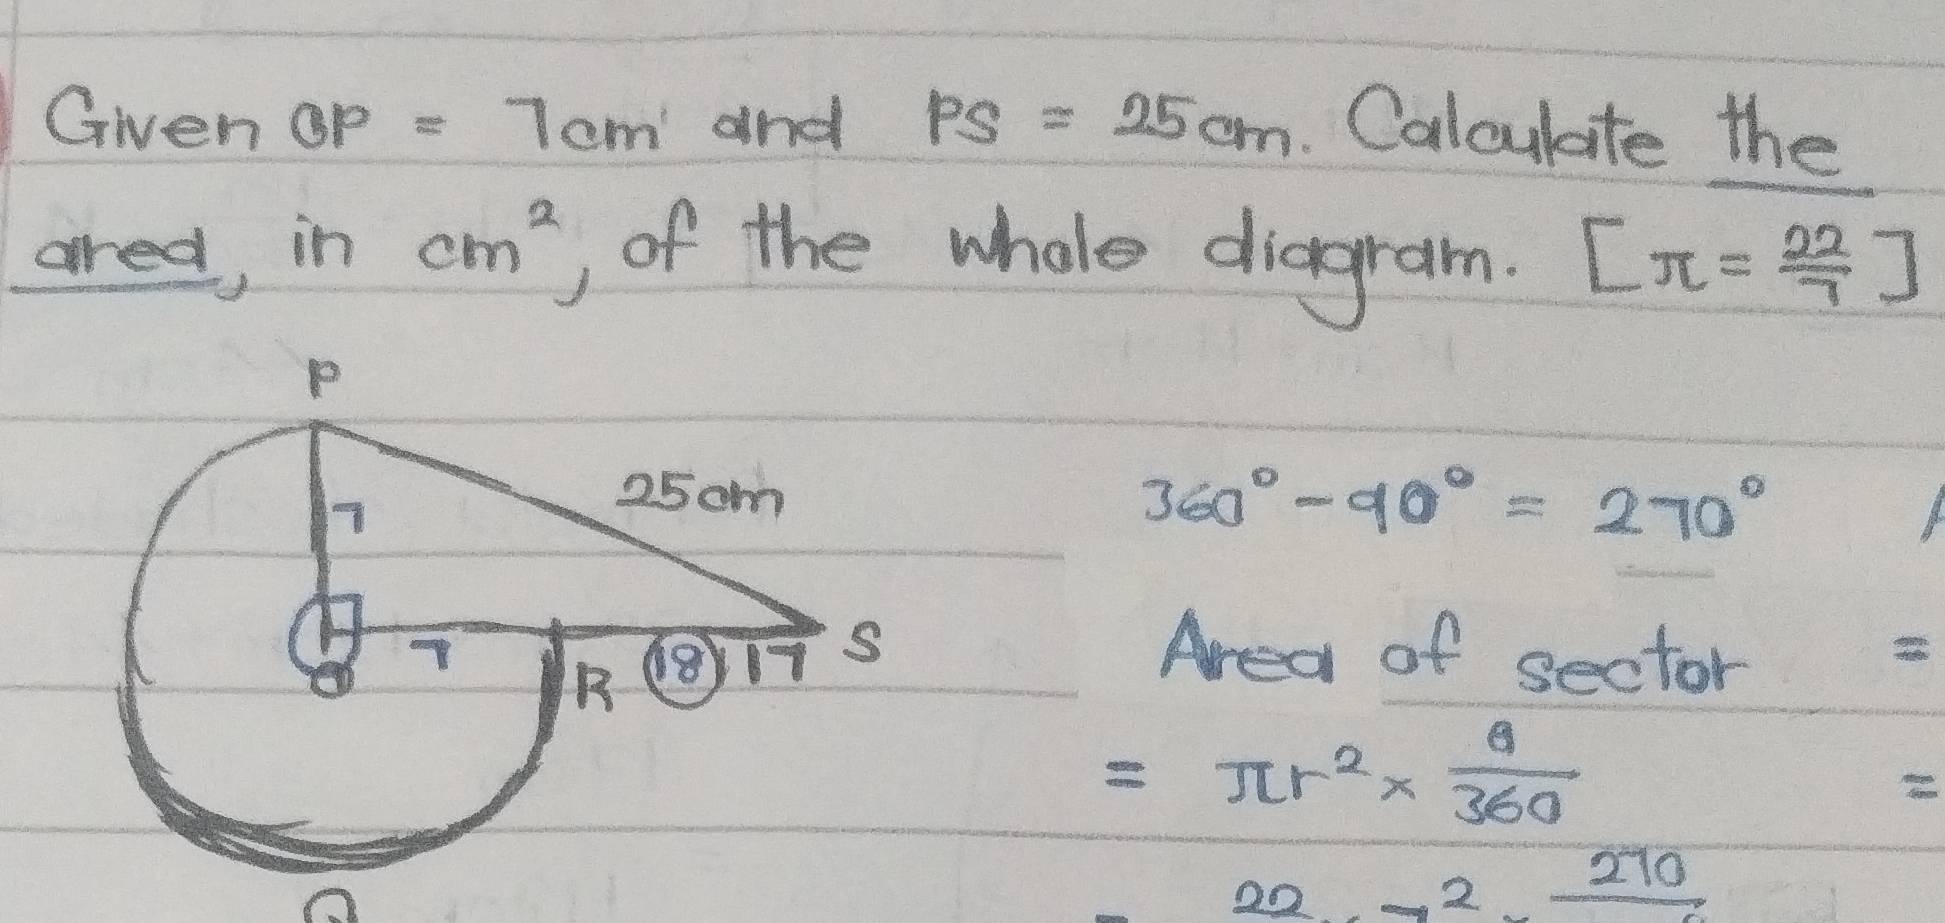 Given OP = 7cm and PS = 25cm. Calculate the
area, in cm², of the whole diagram. [π = 22/7]
P
7
25cm
7
O
R
18
17
S
Q
360° - 90° = 270°
Area of sector =
= πr² × θ/360 =
= 22 7² × 270